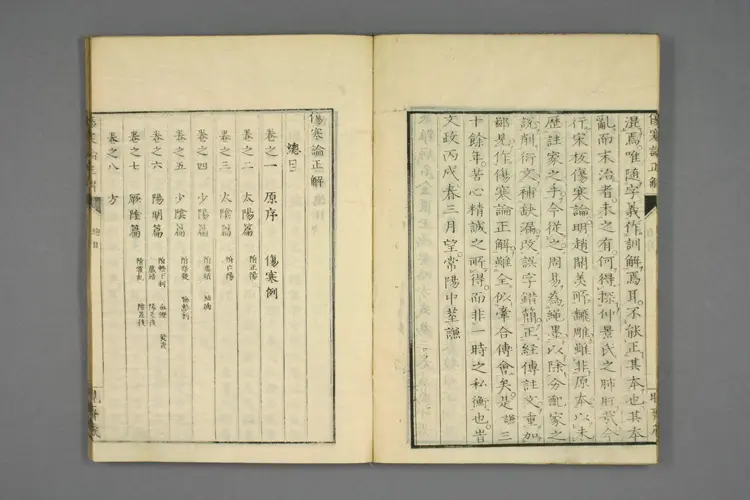 混焉唯随字義作訓解焉耳不能正其本也其本
亂而末治者未之有何得探仲景氏之肺肝哉今
行宋板傷寒論明趙開美所飜雕雖非原本以未
歴註家之手今從之周易為繩墨以除分配家之
説削衍文補缺漏改誤字錯簡正經傳註文重加
鄙見作傷寒論正解雖全似牽合傳會矣是謙三
十餘年苦心精誠之所得而非一時之私衡也旹
文政丙戌春三月望常陽中莖謙
傷寒論正解
總目
卷之一 原序 傷寒例
卷之二 太陽篇 附正陽
卷之三 太陰篇
卷之四 少陽篇
卷之五 少陰篇
卷之六 陽明篇
卷之七 厥陰篇 附霍亂
卷之八 方
傷寒論正解